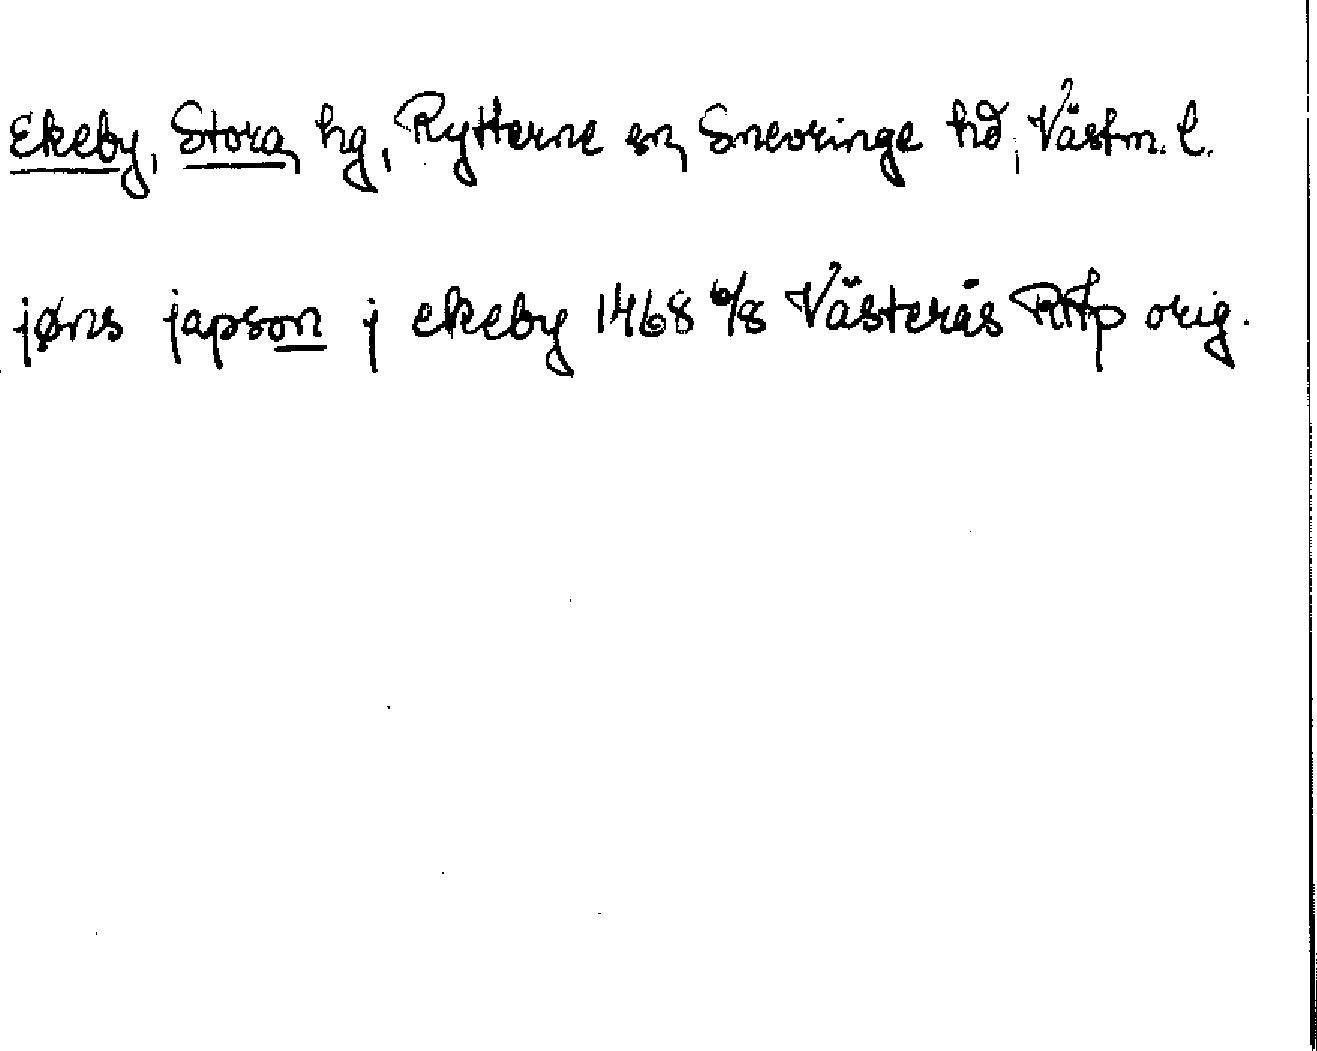 Ekeby, Stora, hg, Rytterne sn, Snevringe hd, Västm. l.
jøns japson j ekeby 1468 6/8 Västerås RAp orig.